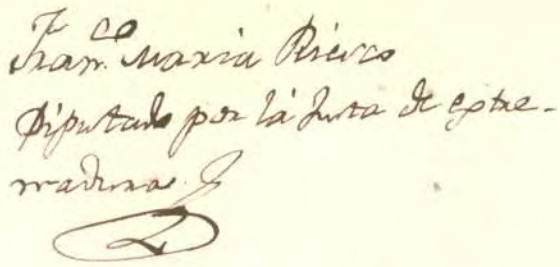 Fran.co Maria Riesco
Diputado por la Junta de Extre-
madura